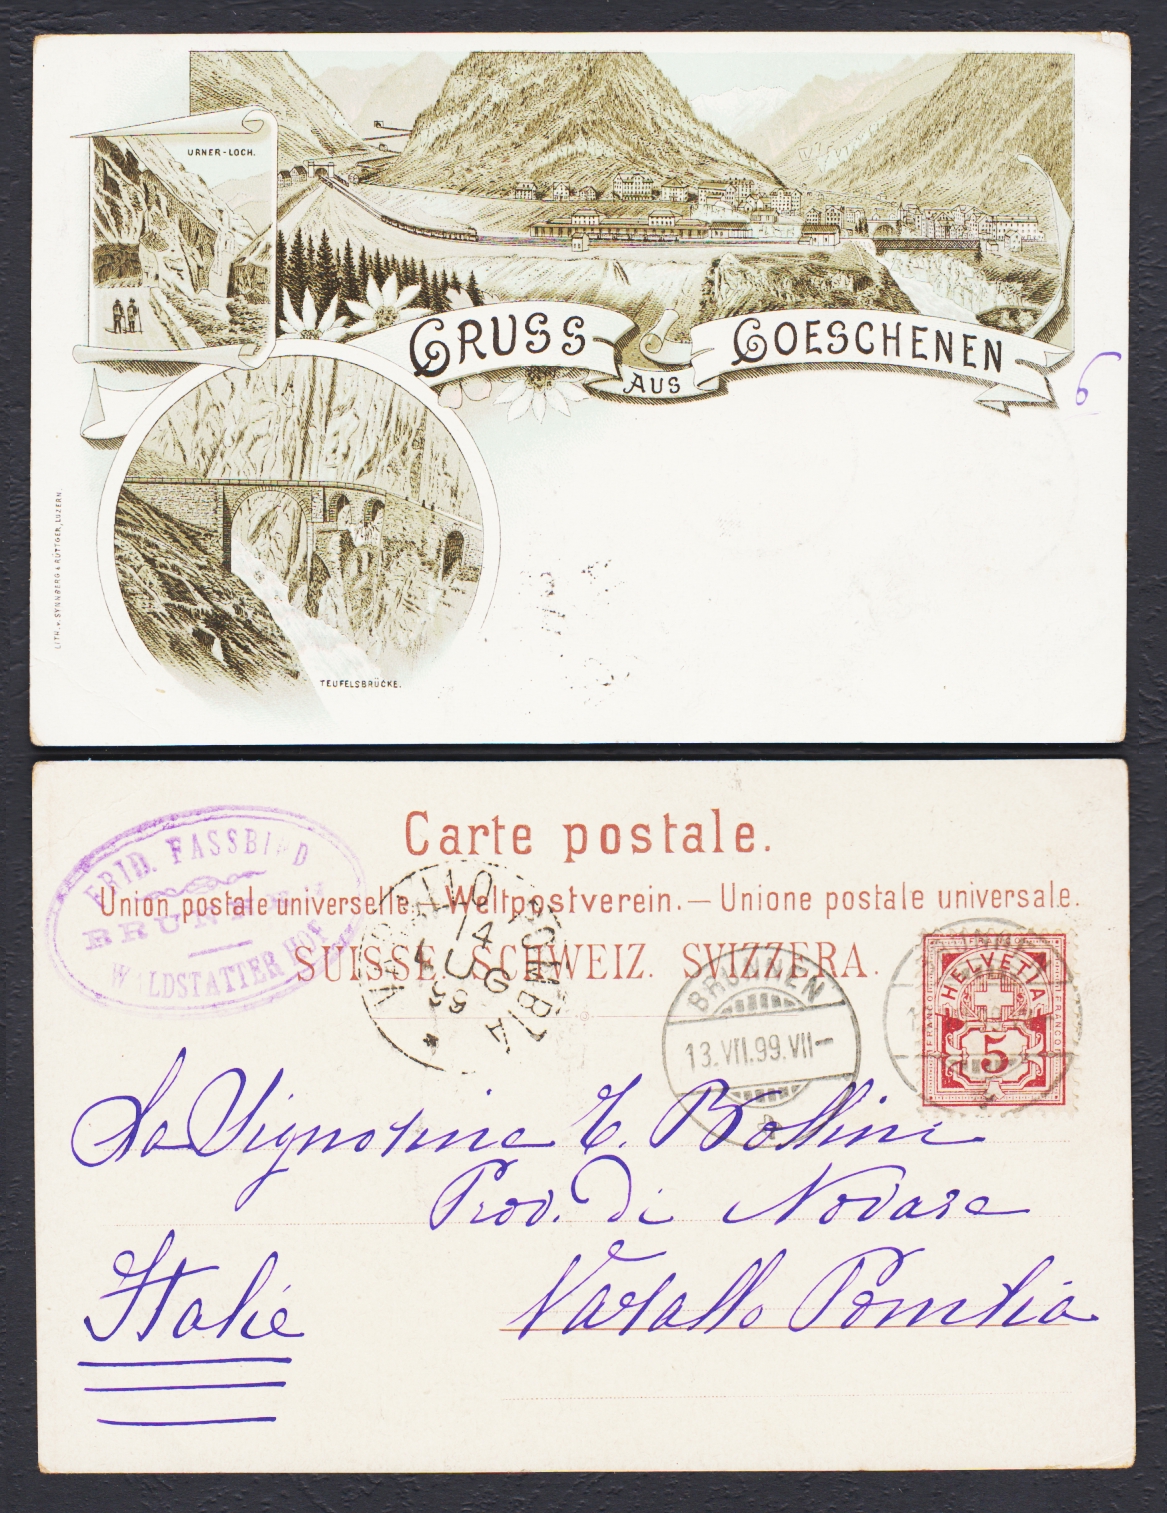 URNER-LOCH.
GRUSS
AUS
GOESCHENEN
6
LITH. v. SYNNBERG & RÜTTGER, LUZERN
TEUFELSBRÜCKE.
Carte postale.
Union postale universelle.—Weltpostverein.—Unione postale universale.
SUISSE. SCHWEIZ. SVIZZERA.
FRID. FASSBIND
BRUNNEN
WALDSTÄTTER HOF
VARALLO POMBIA
14 LUG 99
BRUNNEN
13.VII.99.VII–
HELVETIA
FRANCO
FRANCO
5
La Signorina E. Bollini
Prov. di Novara
Italie
Varallo Pombia